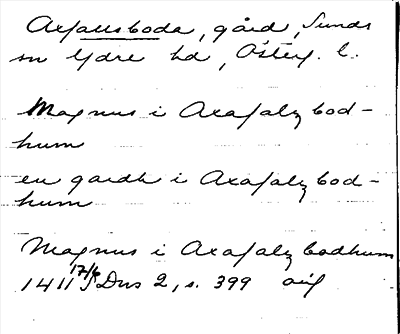 Axallsboda, gård, Sunds
sn Ydre hd, Österg. l.
Magnus i Axafalz bod-
hum
en gardh i Axafalz bod-
hum
Magnus i Axafalz bodhum
1411 17/6 SDns 2, s. 399